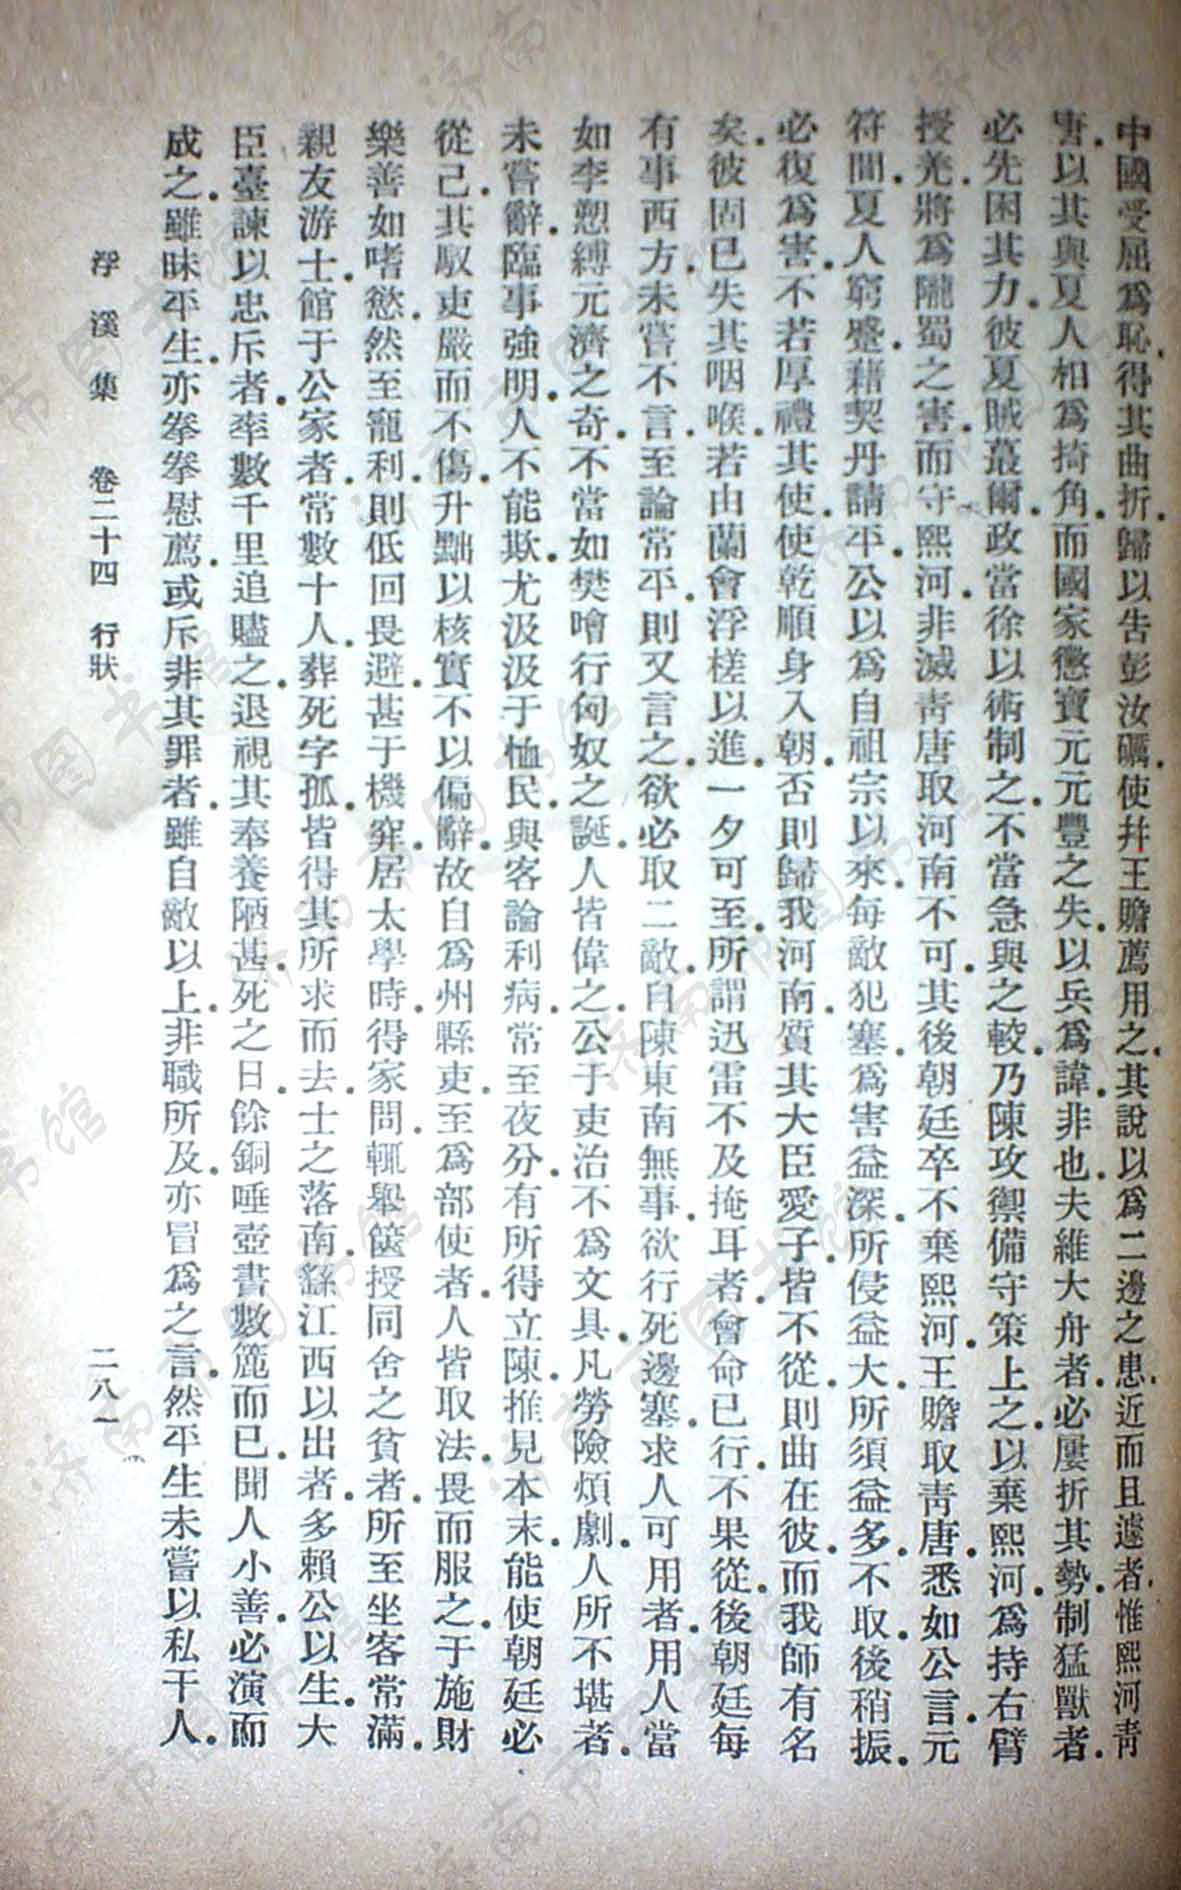 中國受屈爲恥。得其曲折。歸以告彭汝礪。使幷王贍薦用之。其說以爲二邊之患。近而且遽者。惟熙河靑
唐。以其與夏人相爲掎角。而國家懲寶元元豐之失。以兵爲諱。非也。夫維大舟者。必屢折其勢。制猛獸者。
必先困其力。彼夏賊蕞爾。政當徐以術制之。不當急與之較。乃陳攻禦備守策上之。以棄熙河。爲持右臂
授羌。將爲隴蜀之害。而守熙河。非滅靑唐取河南不可。其後朝廷卒不棄熙河。王贍取靑唐。悉如公言。元
符間。夏人窮蹙。藉契丹請平。公以爲自祖宗以來。每敵犯塞。爲害益深。所侵益大。所須益多。不取。後稍振。
必復爲害。不若厚禮其使。使乾順身入朝。否則歸我河南。質其大臣愛子。皆不從。則曲在彼。而我師有名
矣。彼固已失其咽喉。若由蘭會浮槎以進。一夕可至。所謂迅雷不及掩耳者。會命已行。不果從。後朝廷每
有事西方。未嘗不言。至論常平。則又言之。欲必取二敵。自陳東南無事。欲行死邊塞。求人可用者。用人當
如李愬縛元濟之奇。不當如樊噲行匈奴之誕。人皆偉之。公于吏治不爲文具。凡勞險煩劇。人所不堪者。
未嘗辭。臨事強明。人不能欺。尤汲汲于恤民。與客論利病。常至夜分。有所得立陳。推見本末。能使朝廷必
從己。其馭吏嚴而不傷。升黜以核實。不以偏辭。故自爲州縣吏。至爲部使者。人皆取法。畏而服之。于施財
樂善如嗜慾。然至寵利。則低回畏避。甚于機穽。居太學時。得家問。輒舉篋授同舍之貧者。所至坐客常滿。
親友游士。館于公家者。常數十人。葬死字孤。皆得其所求而去。士之落南。繇江西以出者。多賴公以生。大
臣臺諫以忠斥者。率數千里追贐之。退視其奉養陋甚。死之日。餘銅唾壺書數簏而已。聞人小善。必演而
成之。雖昧平生。亦拳拳慰薦。或斥非其罪者。雖自敵以上。非職所及。亦冒爲之言。然平生未嘗以私干人。
浮溪集 卷二十四 行狀 二八一
济南市图书馆